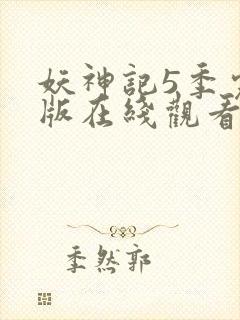 妖神記5季
版在綫觀看
季然郭